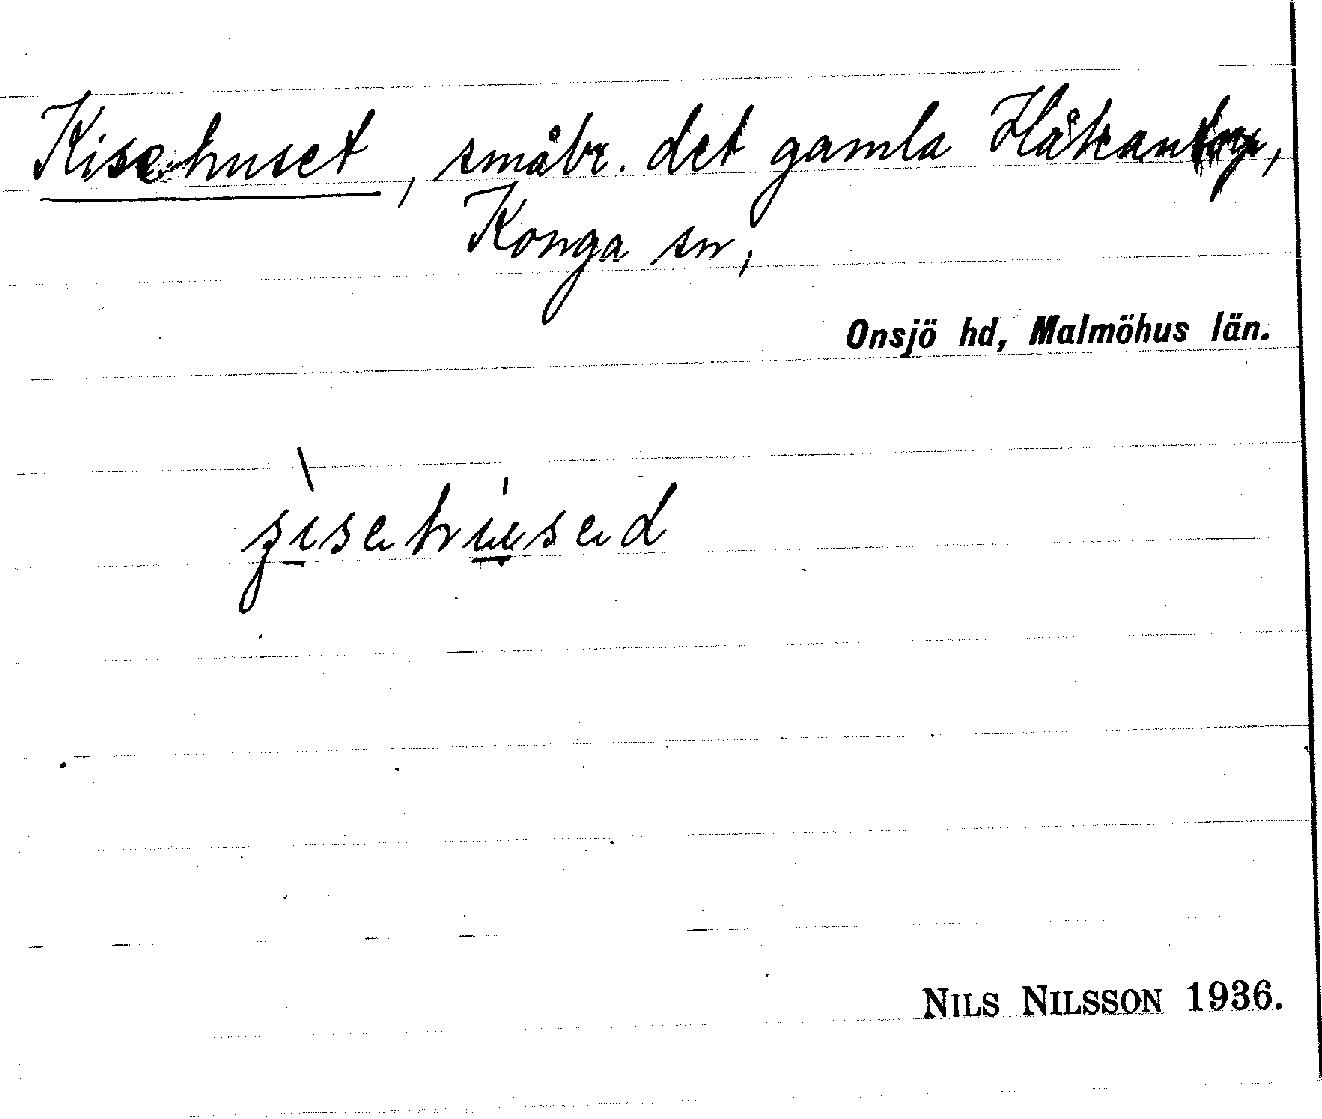 Kisehuset, småbr. det gamla Håkantorp,
Konga sn,
Onsjö hd, Malmöhus län.
NILS NILSSON 1936.